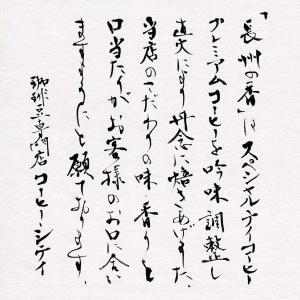 「長州の香」はスペシャルティコーヒー
プレミアムコーヒーを吟味調整し
直火により丹念に焙きあげました、
当店のこだわりの味香りと
口当たりがお客様のお口に合い
ますようにと願っております、
珈琲豆専門店コーヒーシティ